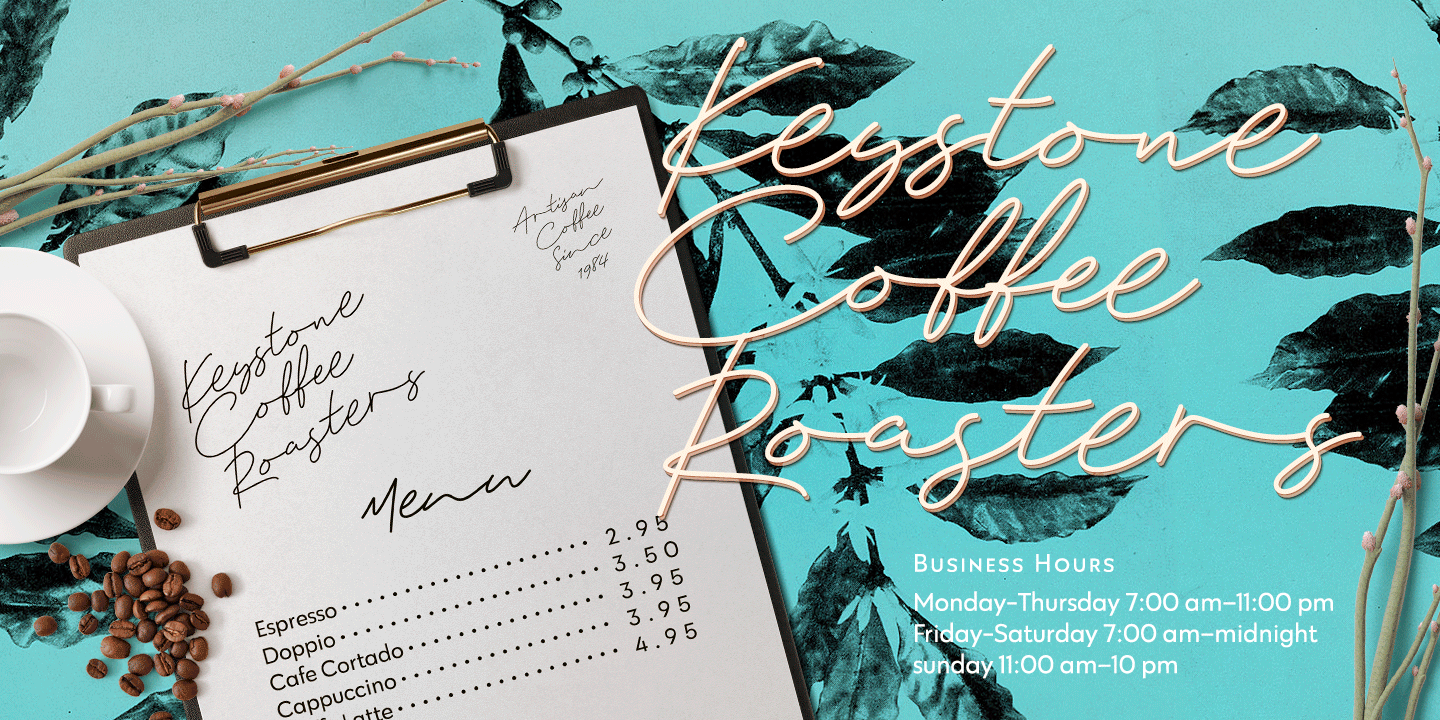 Artisan
Coffee
Since
1984
Keystone
Coffee
Roasters
Menu
Espresso 2.95
Doppio 3.50
Cafe Cortado 3.95
Cappuccino 3.95
Latte 4.95
Keystone
Coffee
Roasters
Business Hours
Monday–Thursday 7:00 am–11:00 pm
Friday–Saturday 7:00 am–midnight
sunday 11:00 am–10 pm